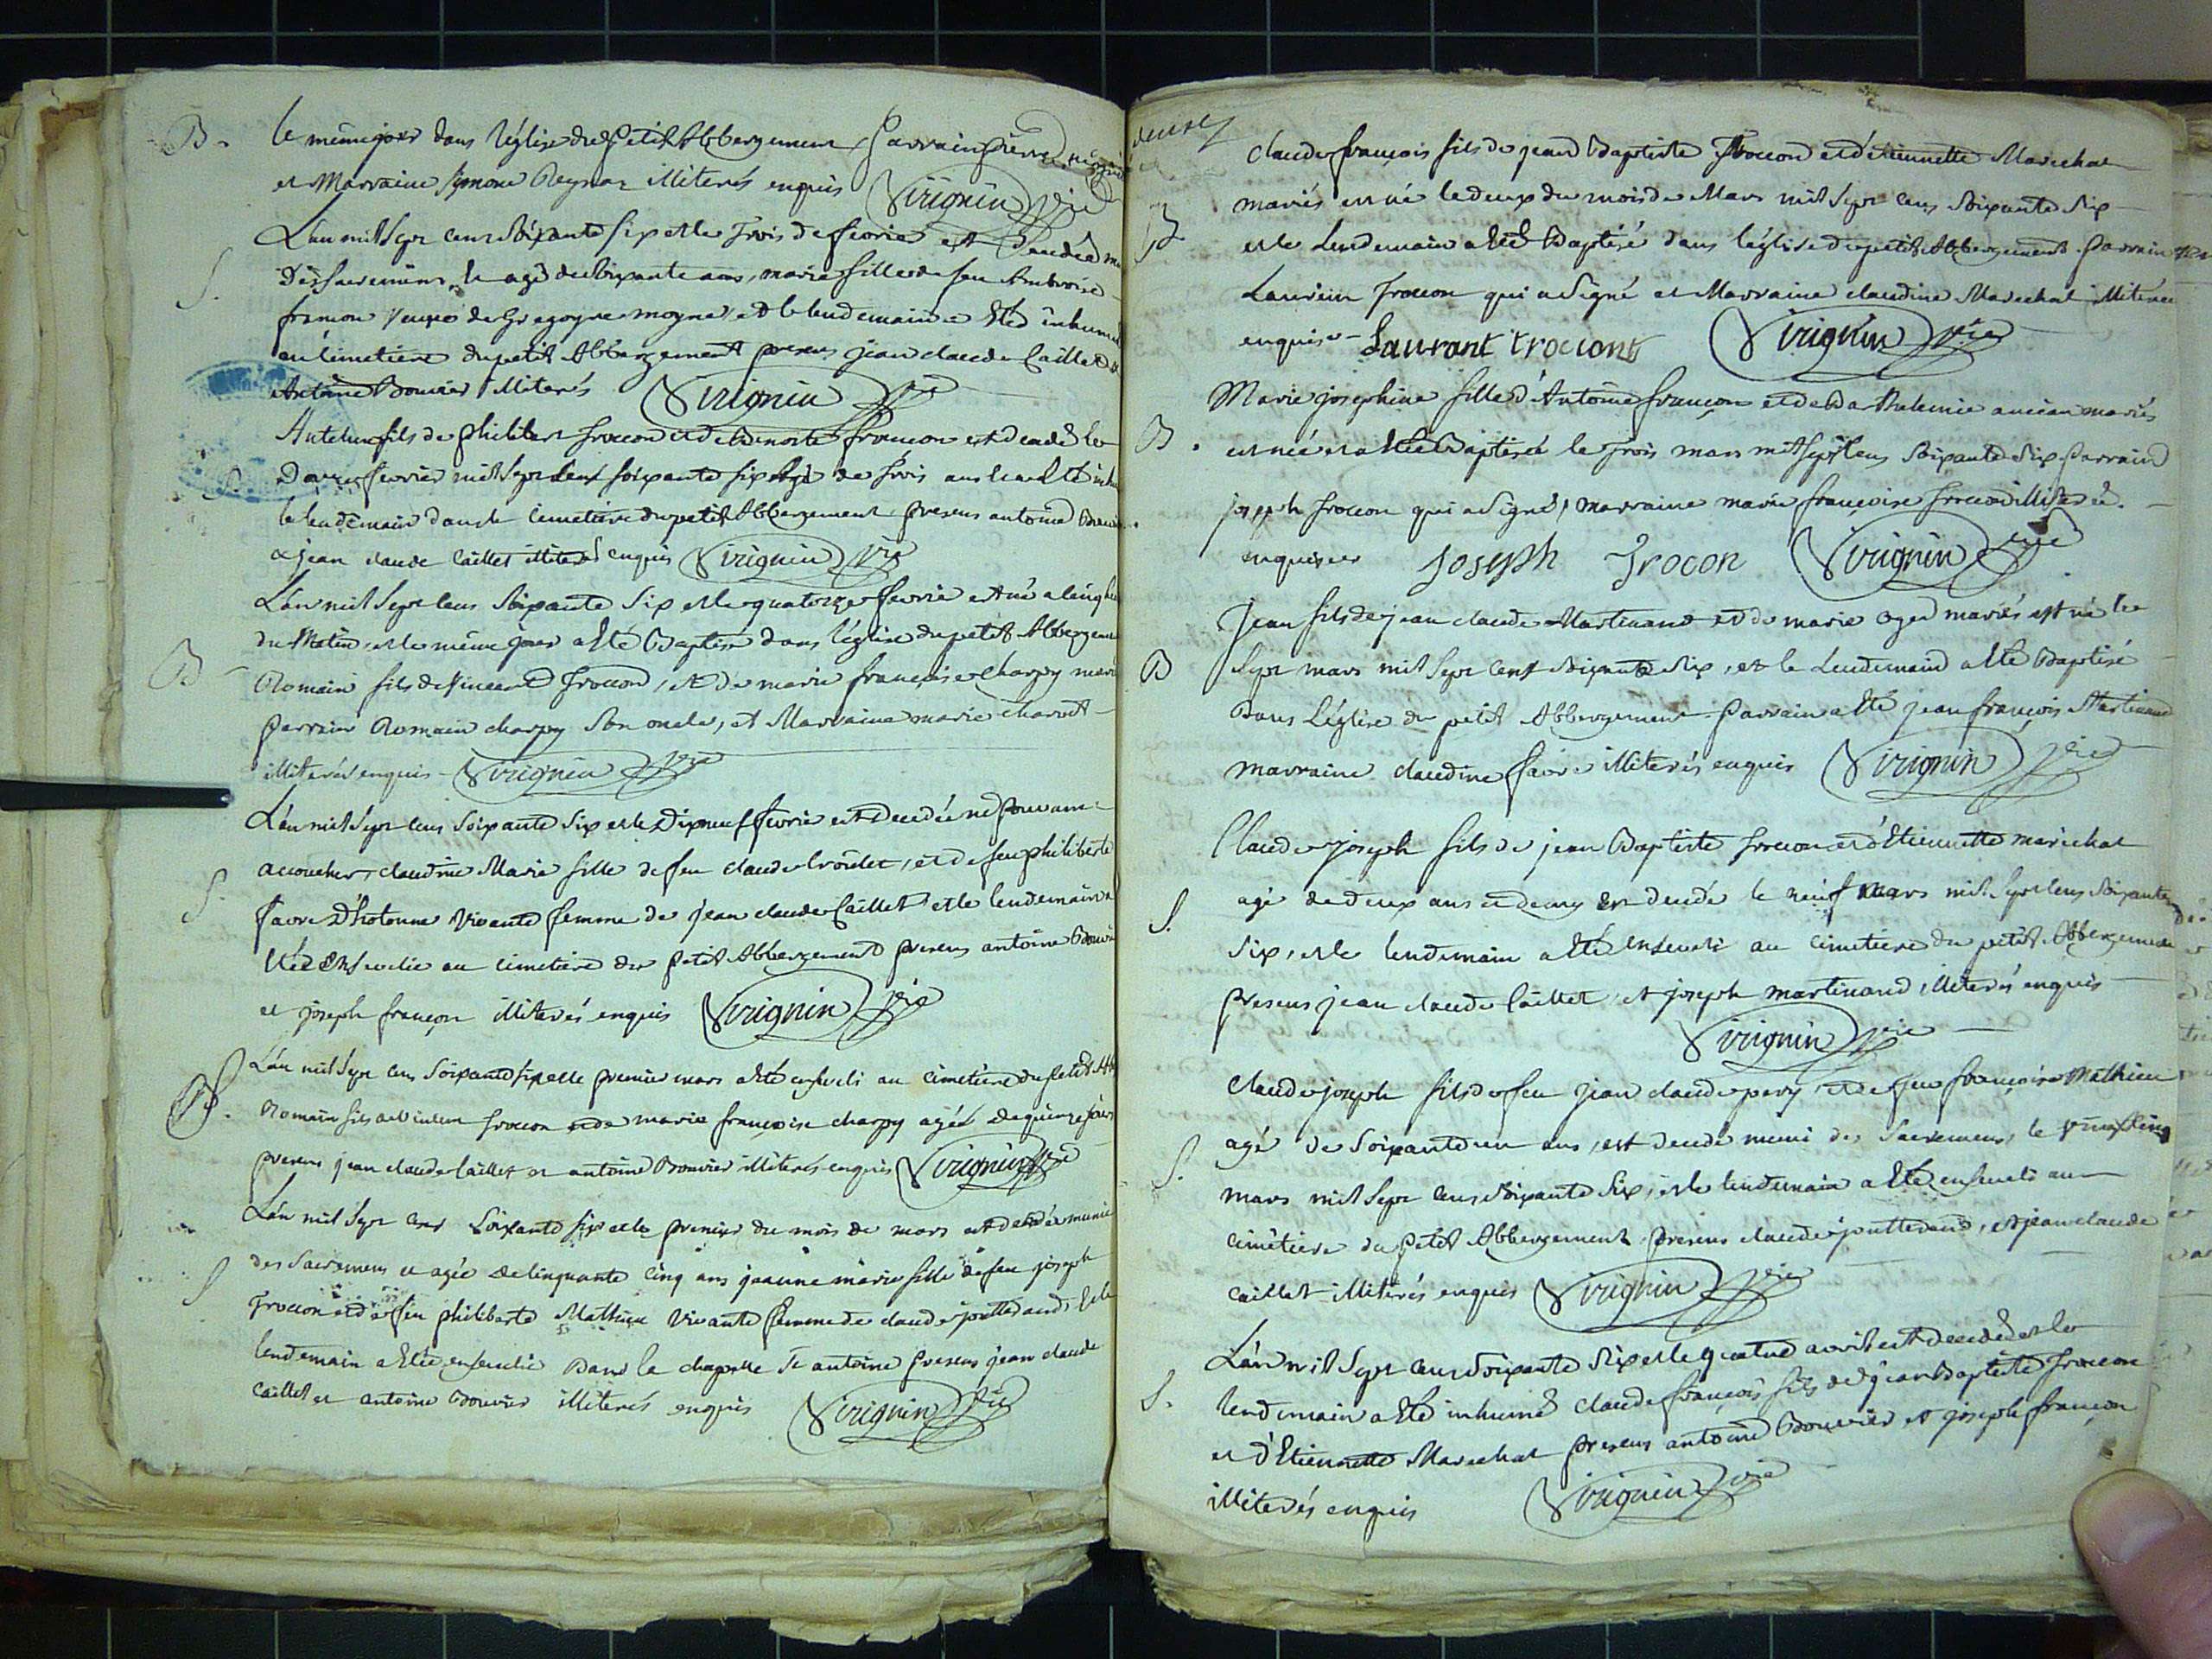 B. le meme jour dans l'église du petit Abbergement Parrain pierre
et Marraine Symone Reynaz illiterés enquis Virignin vic
L'an mil sept cent soixante six et le trois de fevrier est decedée
des sacremens, agé de soixante ans, marie fille de feu Ambroise
S.
françon veuve de Gregoyre moyne, et le lendemain a Eté inhumé
au cimetiere du petit Abbergement presens jean claude Caillet
Antoine Bouvier illiterés Virignin vic
Antelme fils de philibert trocon et de Benoite françon est decedé le
S. douze fevrier mil sept cent soixante six Agé de trois ans et a eté
le lendemain dans le Cimetiere du petit Abbergement presens antoine Bouvier
& jean claude Caillet illiterés enquis Virignin vic
L'an mil sept cens soixante six et le quatorze fevrie est né a cinq
du Matin, et le meme jour a Eté Baptisé dans l'église du petit Abbergement
B Romain fils de Vincent trocon, et de marie françoise charpy
parrain Romain charpy son oncle, et Marraine marie charvet
illiterés enquis Virignin vic
L'an mil sept cens soixante six et le dix neuf fevrie est decedée ne pouvant
S. accoucher, claudine Marie fille de feu claude, et de feu philiberte
favre d'hotonne vivante femme de jean claude Caillet et le lendemain a
Eté Ensevelie au cimetiere du petit Abbergement presens antoine Bouvier
et joseph françon illiterés enquis Virignin vic
L'an mil sept cens soixante six et le premier mars a Eté enseveli au cimetiere du petit
S. Romain fils de Vincent trocon et de marie françoise charpy agé de quinze jours
presens jean claude Caillet et antoine Bouvier illiterés enquis Virignin vic
L'an mil sept cens soixante six et le premier du mois de mars est decedée munie
S des sacremens et agée de cinquante cinq ans jeanne marie fille de feu joseph
trocon et de feu philiberte Mathieu vivante femme de claude jouttedand, Et le
lendemain a Etée ensevelie dans la chapelle st antoine presens jean claude
caillet et antoine bouvier illiterés enquis Virignin vic
claude françois fils de jean Baptiste trocon et d'étiennette Marechal
mariés est né le deux du mois de Mars mil sept cens soixante six
B et le lendemain a Eté Baptisé dans l'église du petit Abbergement parrain
Laurein trocon qui a signé et Marraine claudine Marechal illiterée
enquise Laurant trociont Virignin vic
Marie josephine fille d'Antoine françon et de Barthelemie ancian mariés
B. est née et a Eté Baptisée le trois mars mil sept cens soixante six parrain
joseph trocon qui a signé, marraine marie françoise trocon illiterée.
enquise Joseph Trocon Virignin vic
Jean fils de jean claude Martinand et de marie oger mariés est né le
B sept mars mil sept cent soixante six, et le lendemain a Eté Baptisé
dans l'église du petit Abbergement parrain a Eté jean françois Martinand
marraine claudine favre illiterés enquis Virignin vic
Claude joseph fils de jean Baptiste trocon et d'Etiennette marechal
S. agé de deux ans et demy est decedé le neuf mars mil sept cens soixante
six, et le lendemain a Eté enseveli au cimetiere du petit Abbergement
presens jean claude Caillet, et joseph martinand illiterés enquis
Virignin vic
claude joseph fils de feu jean claude pery et de feu françoise Mathieu
S. agé de soixante un ans, est decedé muni des sacremens, le vingt cinq
mars mil sept cens soixante six, et le lendemain a Eté enseveli au
cimetiere du petit Abbergement presens claude jouttedand, et jean claude
caillet illiterés enquis Virignin vic
L'an mil sept cens soixante six et le quatre avril est decedé et le
S. lendemain a Eté inhumé claude françois fils de jean Baptiste trocon
et d'Etiennette Marechal presens antoine Bouvier et joseph françon
illiterés enquis Virignin vic